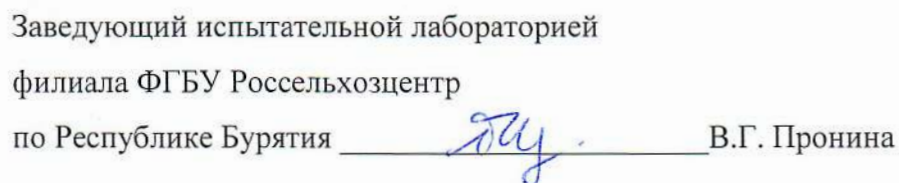 Заведующий испытательной лабораторией
филиала ФГБУ Россельхозцентр
по Республике Бурятия В.Г. Пронина